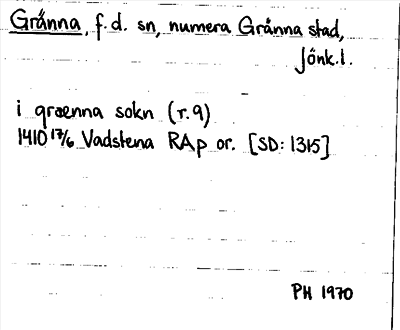 Gränna, f.d. sn, numera Gränna stad,
Jönk.l.
i grænna sokn (r.9)
1410 17/6 Vadstena RAp or. [SD: 1315]
PH 1970